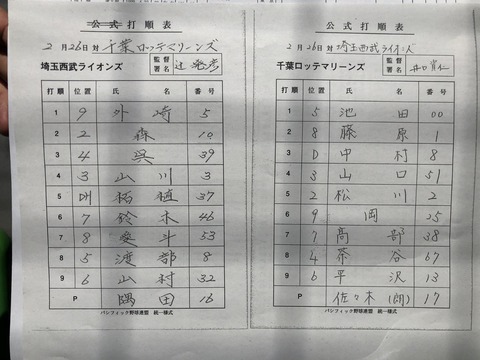 公式打順表
2月26日対 千葉ロッテマリーンズ
埼玉西武ライオンズ 監督署名 辻発彦
打順 位置 氏名 番号
1 9 外崎 5
2 2 森 10
3 4 呉 39
4 3 山川 3
5 DH 柘植 37
6 7 鈴木 46
7 8 愛斗 53
8 5 渡部 8
9 6 山村 32
P 隅田 16
パシフィック野球連盟 統一様式
公式打順表
2月26日対 埼玉西武ライオンズ
千葉ロッテマリーンズ 監督署名 井口資仁
打順 位置 氏名 番号
1 5 池田 00
2 8 藤原 1
3 D 中村 8
4 3 山口 51
5 2 松川 2
6 9 岡 25
7 7 髙部 38
8 4 茶谷 67
9 6 平沢 13
P 佐々木(朗) 17
パシフィック野球連盟 統一様式